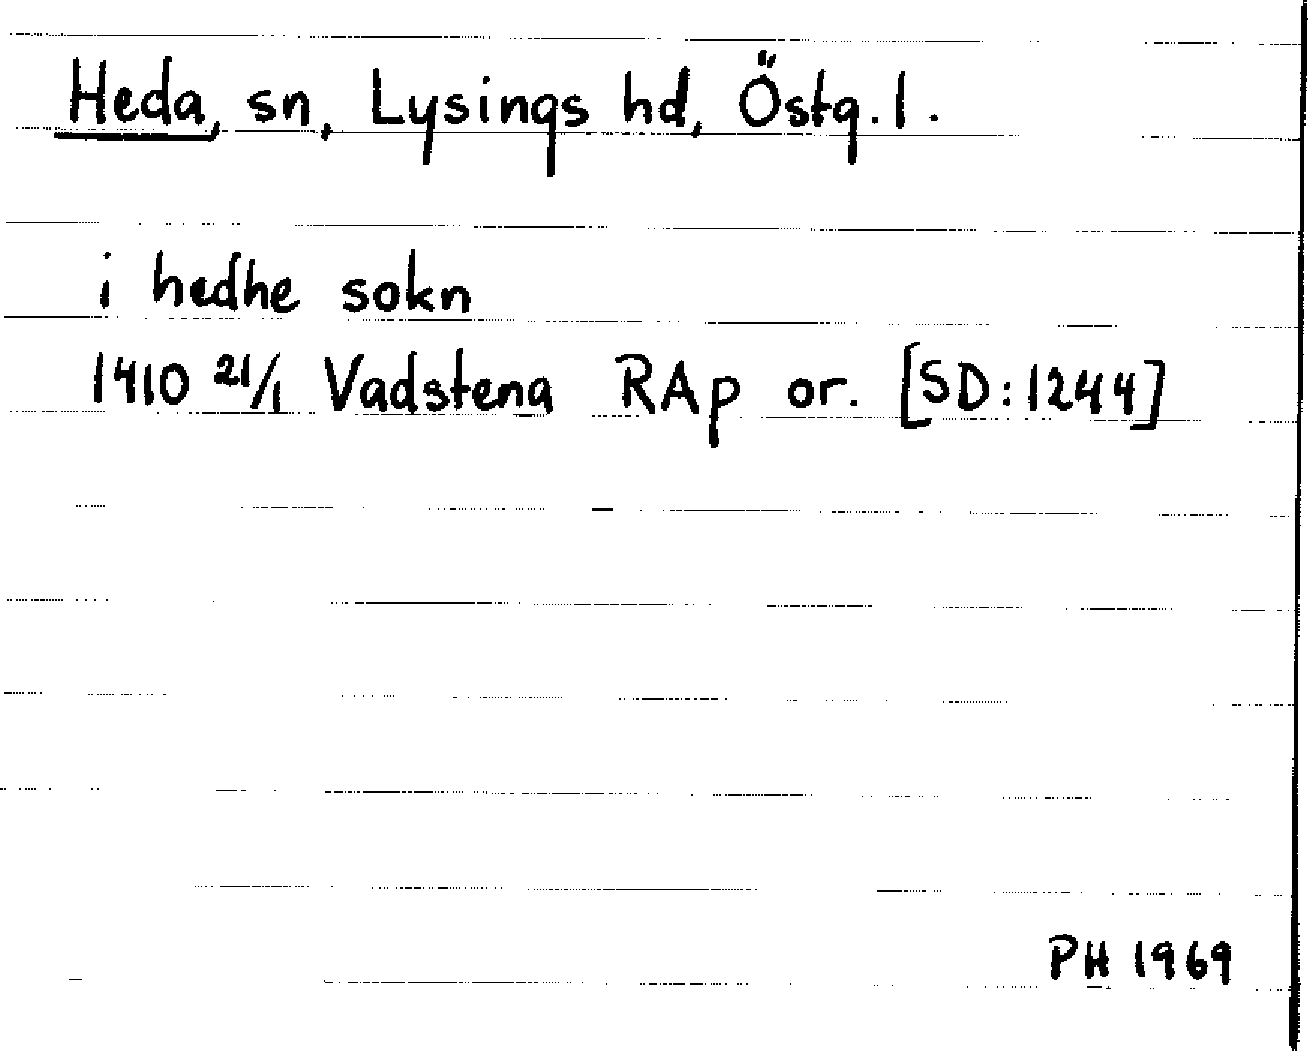 Heda, sn, Lysings hd, Östg. l.
i hedhe sokn
1410 21/1 Vadstena RAp or. [SD:1244]
PH 1969